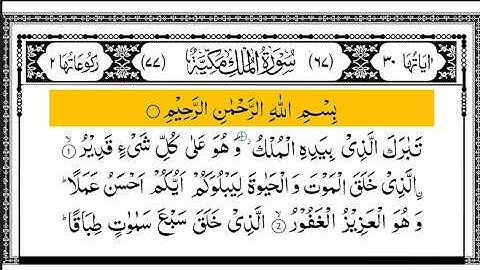 اٰیَاتُهَا ۳۰ (۶۷) سُوْرَةُ الْمُلْكِ مَكِّیَّةٌ (۷۷) رُكُوْعَاتُهَا ۲
بِسْمِ اللّٰهِ الرَّحْمٰنِ الرَّحِیْمِ
تَبٰرَكَ الَّذِیْ بِیَدِهِ الْمُلْكُ ؗ وَ هُوَ عَلٰی كُلِّ شَیْءٍ قَدِیْرُ ۙ ۱
اِ۟لَّذِیْ خَلَقَ الْمَوْتَ وَ الْحَیٰوةَ لِیَبْلُوَكُمْ اَیُّكُمْ اَحْسَنُ عَمَلًا ؕ
وَ هُوَ الْعَزِیْزُ الْغَفُوْرُ ۙ ۲ الَّذِیْ خَلَقَ سَبْعَ سَمٰوٰتٍ طِبَاقًا ؕ